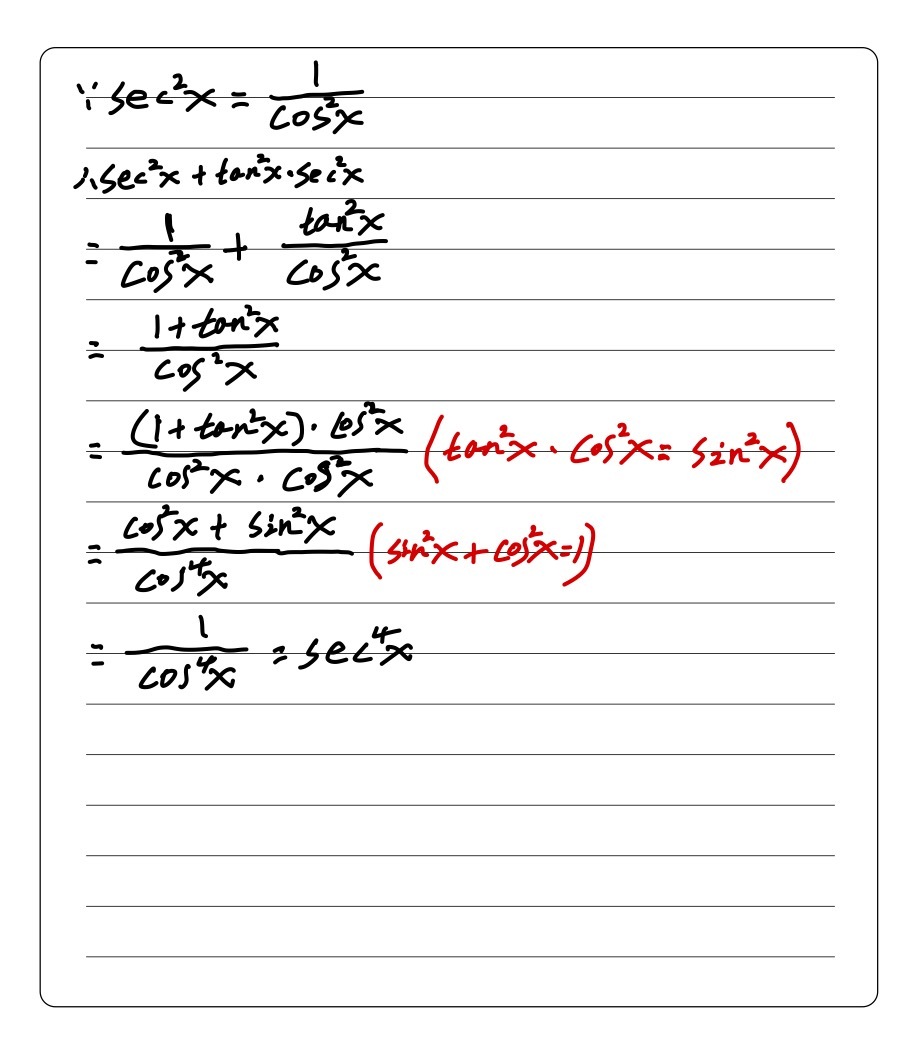 ∵ sec²x = 1/cos²x
∴ sec²x + tan²x·sec²x
= 1/cos²x + tan²x/cos²x
= (1+tan²x)/cos²x
= ((1+tan²x)·cos²x)/(cos²x·cos²x) (tan²x·cos²x = sin²x)
= (cos²x + sin²x)/cos⁴x (sin²x+cos²x=1)
= 1/cos⁴x = sec⁴x